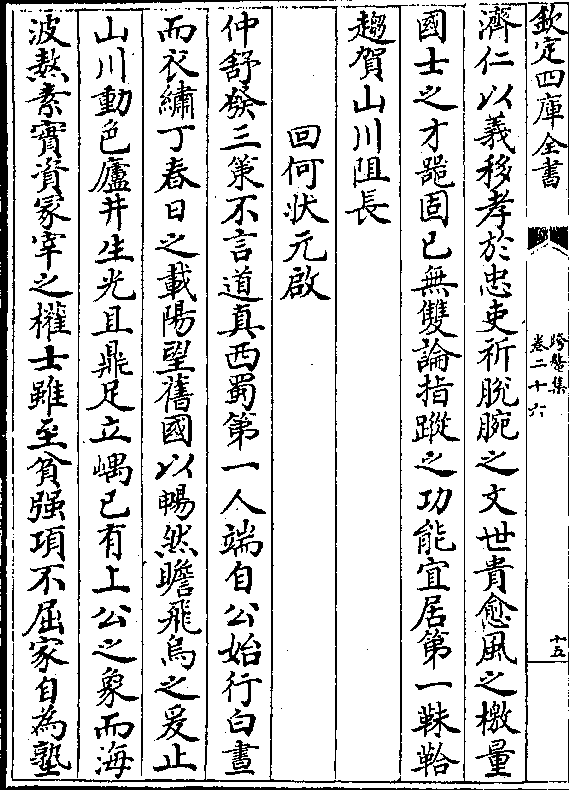 欽定四庫全書
跨鼇集
卷二十六
十五
濟仁以義移孝於忠吏祈脫腕之文世貴愈風之檄量
國士之才器固已無雙論指蹤之功能宜居第一韎韐
趨賀山川阻長
回何狀元啟
仲舒發三策不言道真西蜀第一人端自公始行白晝
而衣繡丁春日之載陽望舊國以暢然瞻飛烏之爰止
山川動色廬井生光且鼎足立嵎已有上公之象而海
波熬素實資冢宰之權士雖至貧强項不屈家自為塾